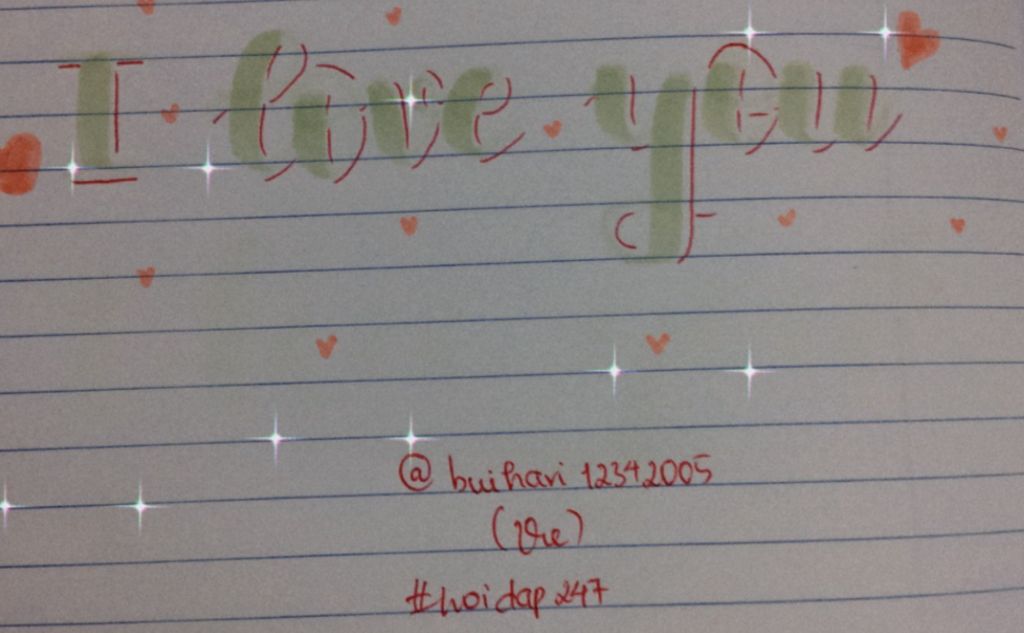 I love you
@buihari12342005
(Vie)
#hoidap247